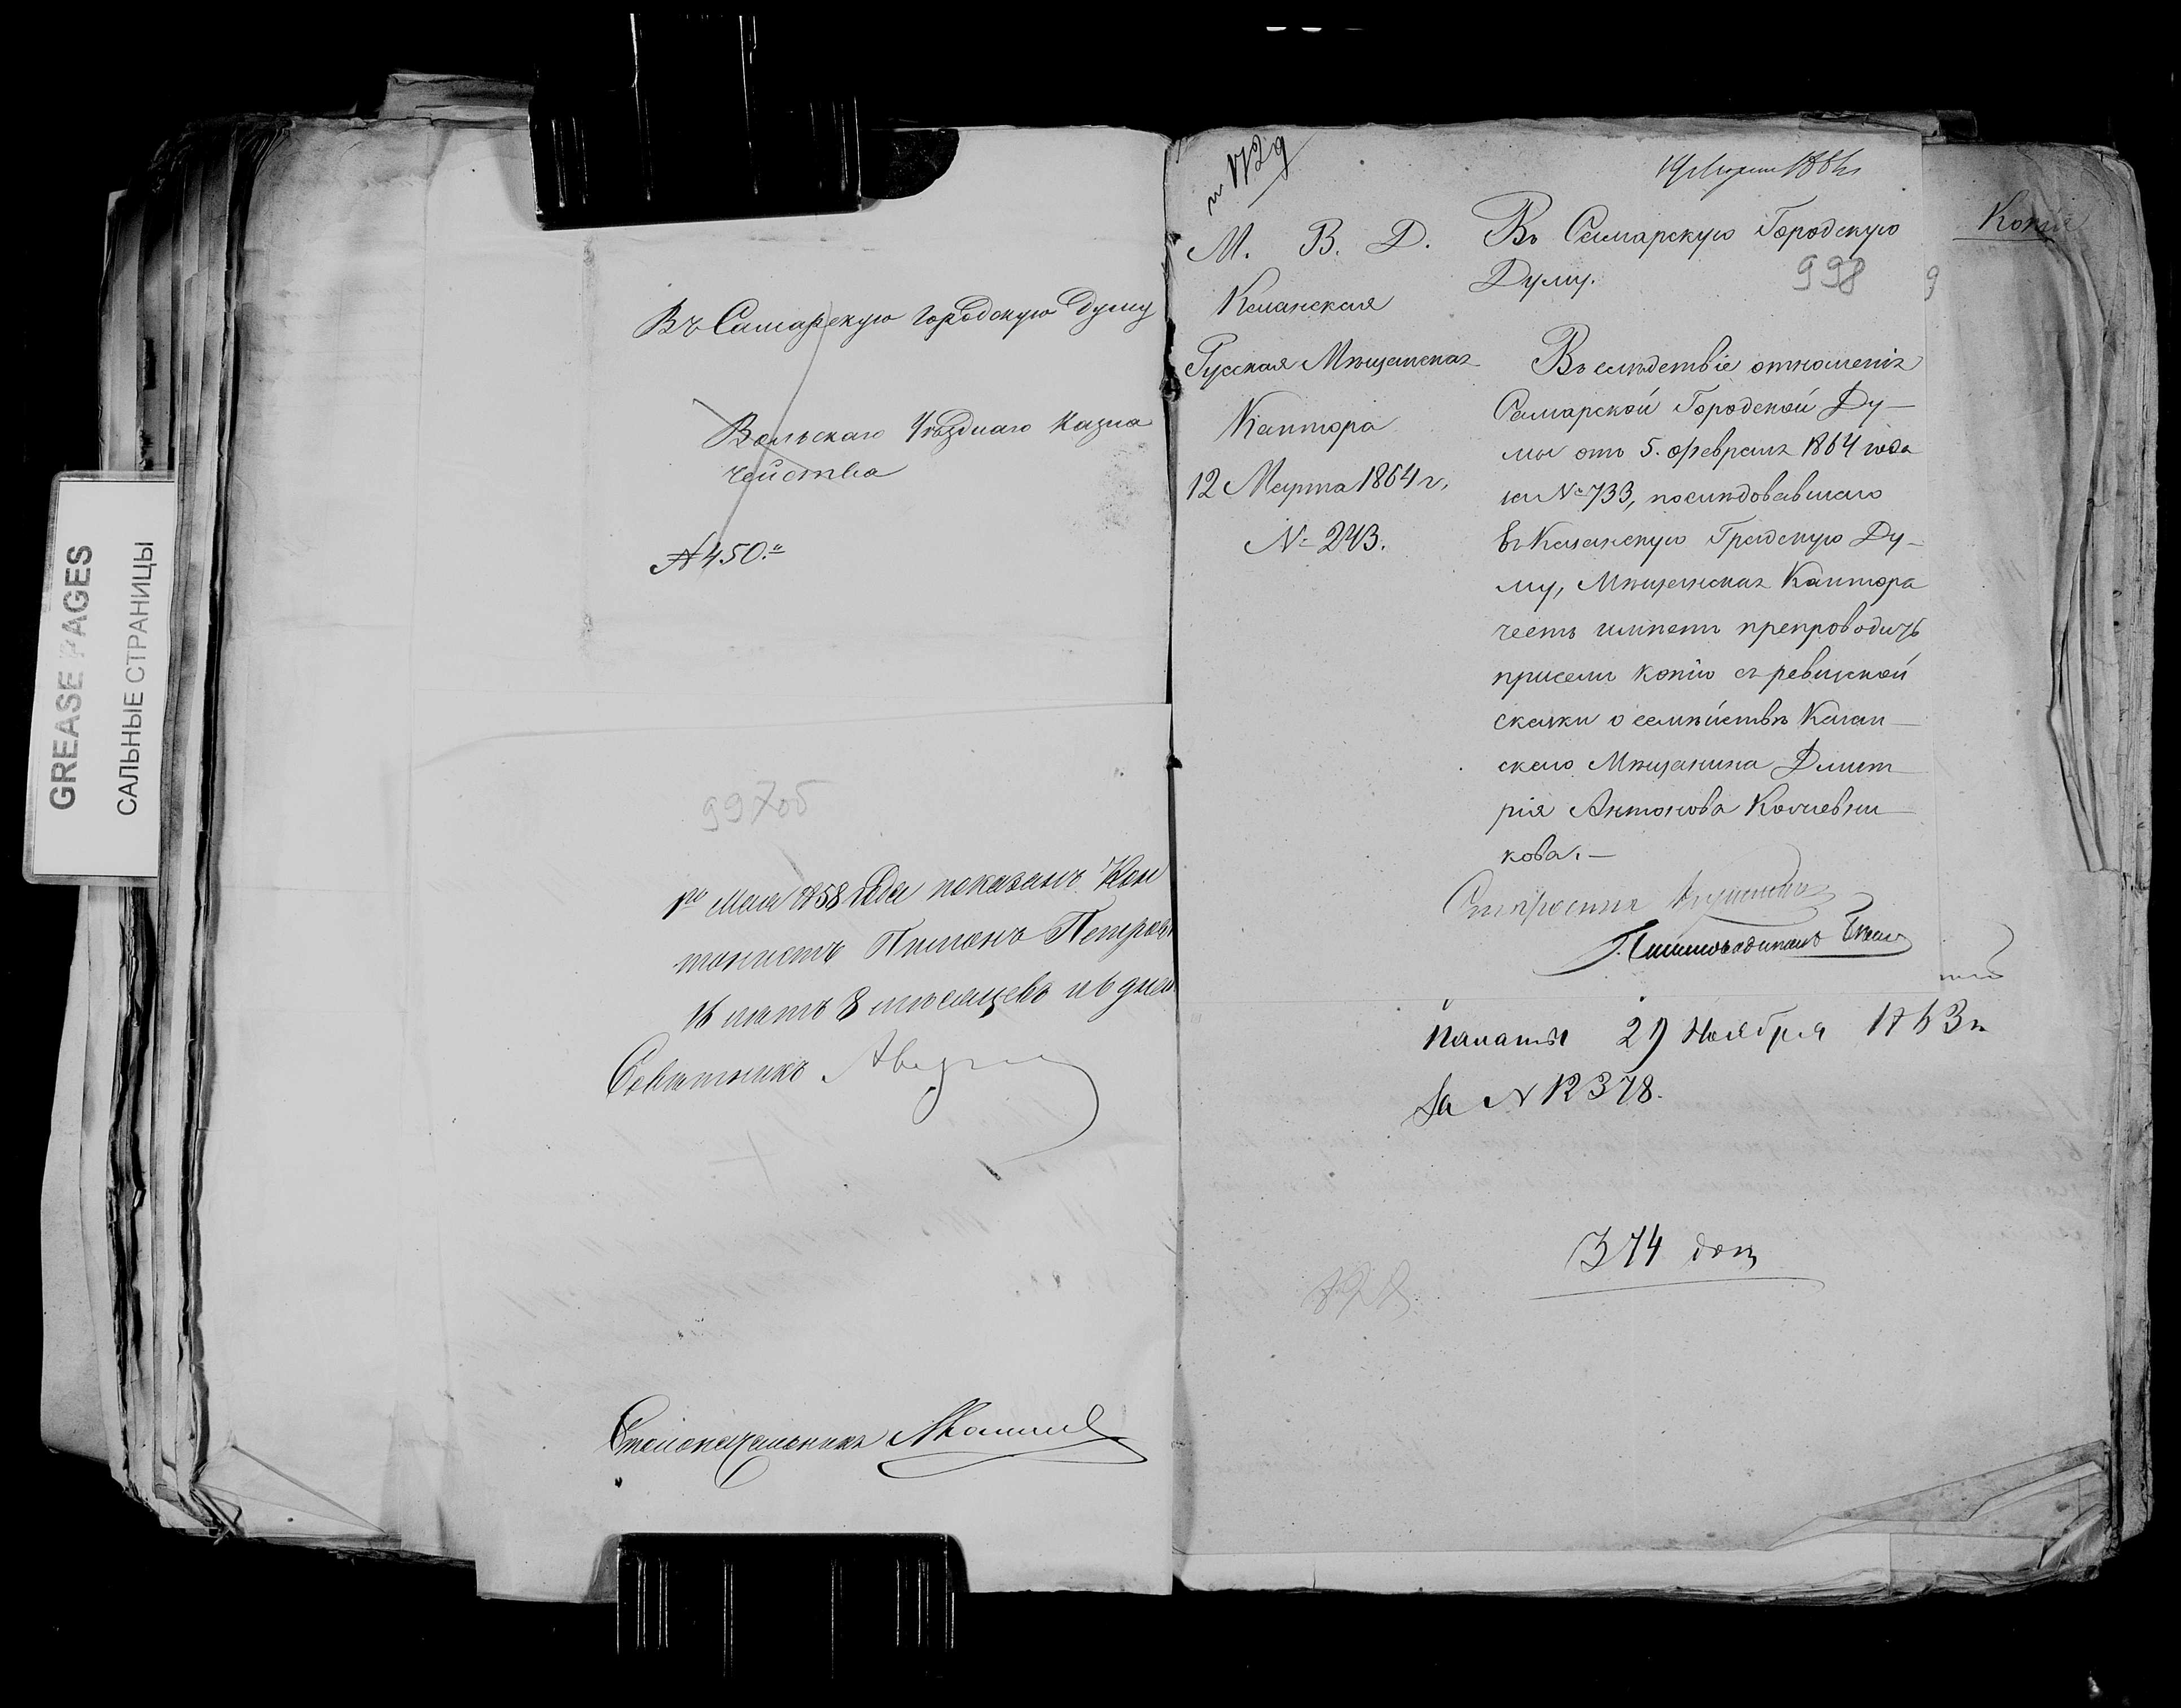 GREASE PAGES
САЛЬНЫЕ СТРАНИЦЫ
Въ Самарскую городскую Думу
Вольскаго Уѣзднаго Казна
чейства
№ 450.
997об
1го Мая 1858 года показанъ Кон
тонистъ Пименъ Петровъ
16 лѣтъ 8 мѣсяцевъ и 6 дней
Совѣтникъ
Столоначальникъ
1729
М. В. Д.
Казанская
Русская Мѣщанская
Кантора
12 Марта 1864 г.
№ 243.
Въ Самарскую Городскую
Думу.
998
9
Копія
Въ слѣдствіе отношенія
Самарской Городской Ду–
мы отъ 5. февраля 1864 года
за № 733, послѣдовавшаго
въ Казанскую Градскую Ду–
му, Мѣщанская Кантора
честь имѣетъ препроводить
присемъ копію съ ревизской
сказки о семѣйствѣ Казан–
скаго Мѣщанина Дмит–
рія Антонова
кова.–
Староста
Палаты 29 Ноября 1863 г.
За № 12378.
374